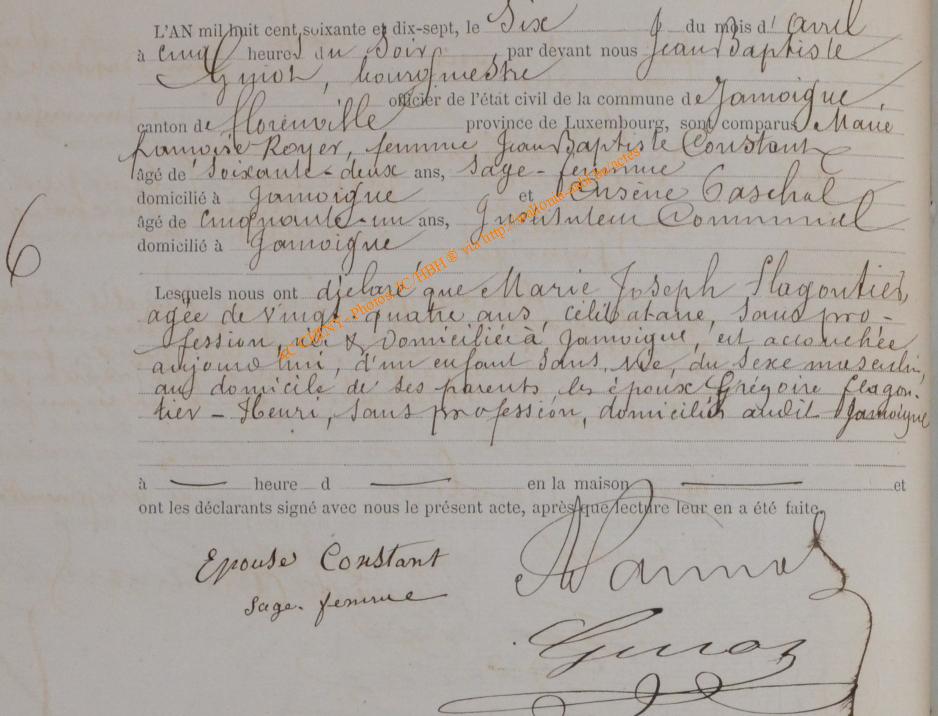 L'AN mil huit cent soixante et dix-sept, le Six du mois d'avril
à cinq heures du Soir par devant nous Jean Baptiste
Guiot, bourgmestre
officier de l'état civil de la commune de Jamoigne,
canton de florenville province de Luxembourg, sont comparus Marie
françoise Royer, femme Jean Baptiste Constant
âgé de Soixante-deux ans, Sage-femme
domicilié à Jamoigne et Arsène Paschal
âgé de cinquante-un ans, Instituteur Communal
domicilié à Jamoigne
6
Lesquels nous ont déclaré que Marie Joseph Flagontier,
agée de vingt-quatre ans, célibataire, sans pro-
fession, née & domiciliée à Jamoigne, est accouchée
aujourd'hui, d'un enfant sans vie, du sexe masculin,
au domicile de ses parents, les époux Grégoire flagon-
tier-Henri, sans profession, domiciliés audit Jamoigne
à — heure d — en la maison — et
ont les déclarants signé avec nous le présent acte, après que lecture leur en a été faite.
Epouse Constant
sage-femme
Guiot
AC CHINY - Photos AC/HBH © via http://